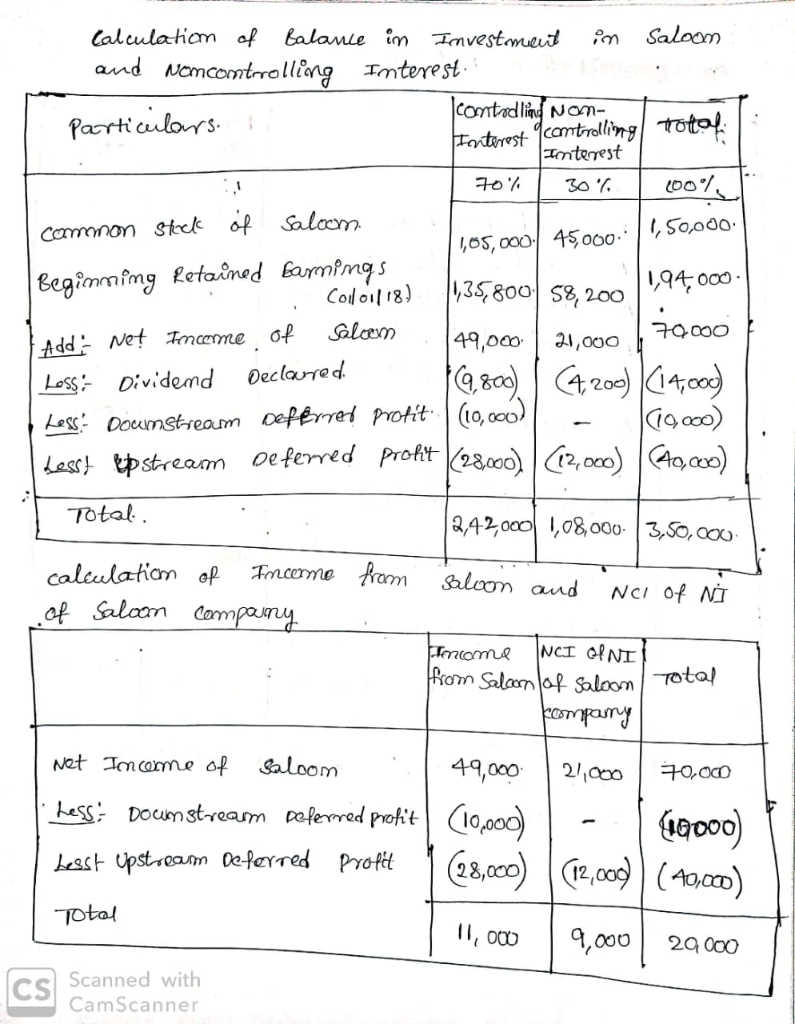 Calculation of Balance in Investment in Saloon
and Noncontrolling Interest.
Particulars. Controlling Interest Non-controlling Interest Total
70% 30% 100%
Common stock of Saloon 1,05,000 45,000 1,50,000
Beginning Retained Earnings (01/01/18) 1,35,800 58,200 1,94,000
Add:- Net Income of Saloon 49,000 21,000 70,000
Less:- Dividend Declared. (9,800) (4,200) (14,000)
Less:- Downstream Deferred profit (10,000) - (10,000)
Less:- Upstream Deferred profit (28,000) (12,000) (40,000)
Total. 2,42,000 1,08,000 3,50,000
Calculation of Income from Saloon and NCI of NI
of Saloon Company
Income from Saloon NCI of NI of Saloon Company Total
Net Income of Saloon 49,000 21,000 70,000
Less:- Downstream Deferred profit (10,000) - (10,000)
Less:- Upstream Deferred Profit (28,000) (12,000) (40,000)
Total 11,000 9,000 20,000
CS Scanned with
CamScanner